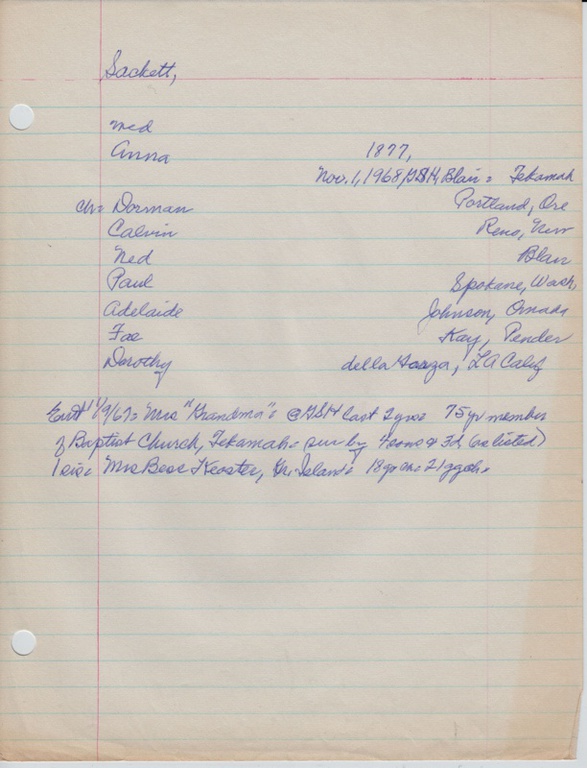 Sackett,
Med
Anna 1877,
Nov. 1, 1968, GSH, Blair = Tekamah
ch= Dorman Portland, Ore
Calvin Reno, Nev
Ned Blair
Paul Spokane, Wash,
Adelaide Johnson, Omaha
Fae Kay, Pender
Dorothy della LA Calif
Mrs "Grandma" @ GSH last 2 yrs 75 yr member
of Baptist Church, Tekamah= sur by 4 sons & 3d, (as listed)
1 sis= Mrs Bess Gr. Island= 18 gr ch= 21 ggch=